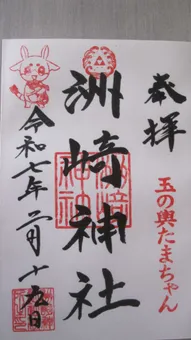 奉拝
玉の輿たまちゃん
洲崎神社
令和七年二月十五日